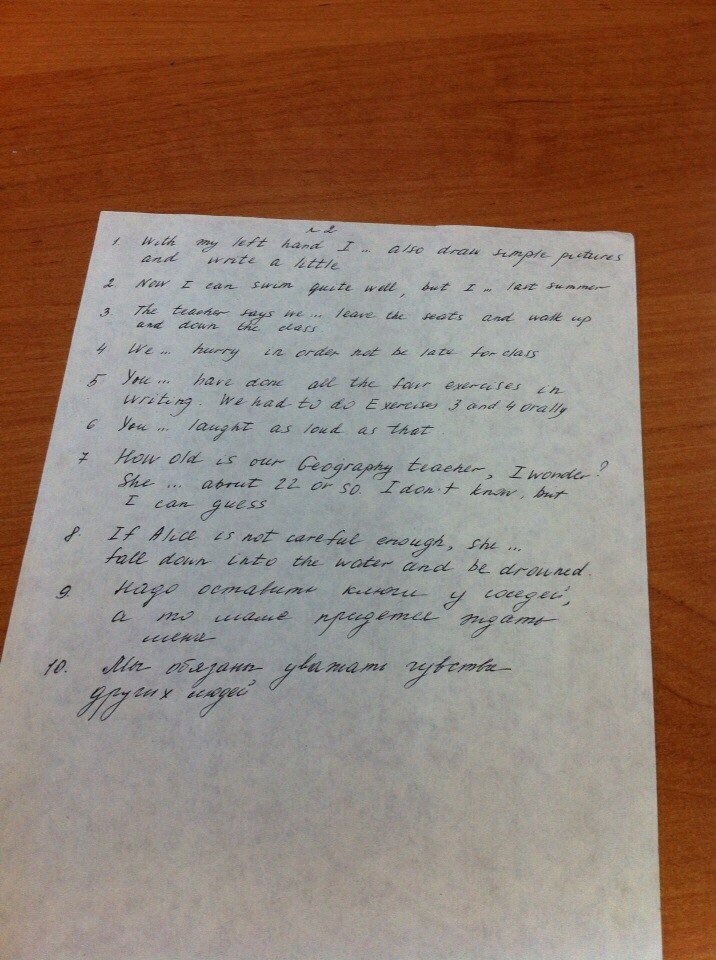 в 2
1. With my left hand I ... also draw simple pictures
and write a little
2. Now I can swim quite well, but I ... last summer
3. The teacher says we ... leave the seats and walk up
and down the class
4 We ... hurry in order not be late for class
5 You ... have done all the four exercises in
writing. We had to do Exercises 3 and 4 orally
6 You ... laught as loud as that.
7 How old is our Geography teacher, I wonder?
She ... about 22 or so. I don't know, but
I can guess
8. If Alice is not careful enough, she ...
fall down into the water and be drouned.
9 Надо оставить ключи у соседей,
а то маме придется ждать
меня
10. Мы обязаны уважать чувства
других людей